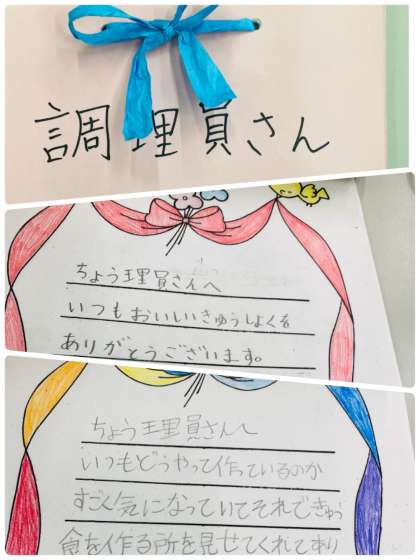 調理員さん
ちょう理員さんへ
いつもおいしいきゅうしょくを
ありがとうございます。
ちょう理員さんへ
いつもどうやって作っているのか
すごく気になっていてそれできゅう
食を作る所を見せてくれてあり